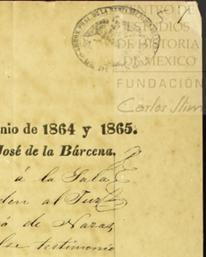 CENTRO DE
ESTUDIOS
DE HISTORIA
DE MEXICO
FUNDACIÓN
Carlos Slim
nio de 1864 y 1865.
José de la Bárcena.
á la Sala
den al Juz
ó de Nazas
testimonio